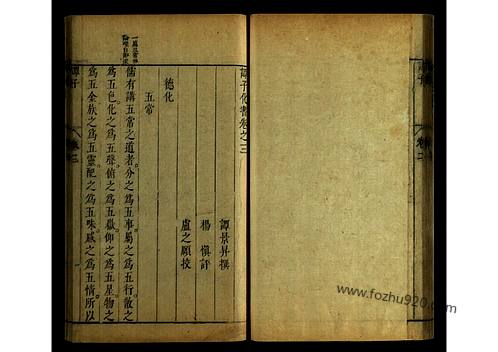 譚子化書卷之三
譚景昇撰
楊慎評
盧之頤校
德化
五常
儒有講五常之道者分之為五事屬之為五行散之
為五色化之為五聲俯之為五嶽仰之為五星物之
為五金族之為五靈配之為五味感之為五情所以
譚子
卷三
www.fozhu920.com